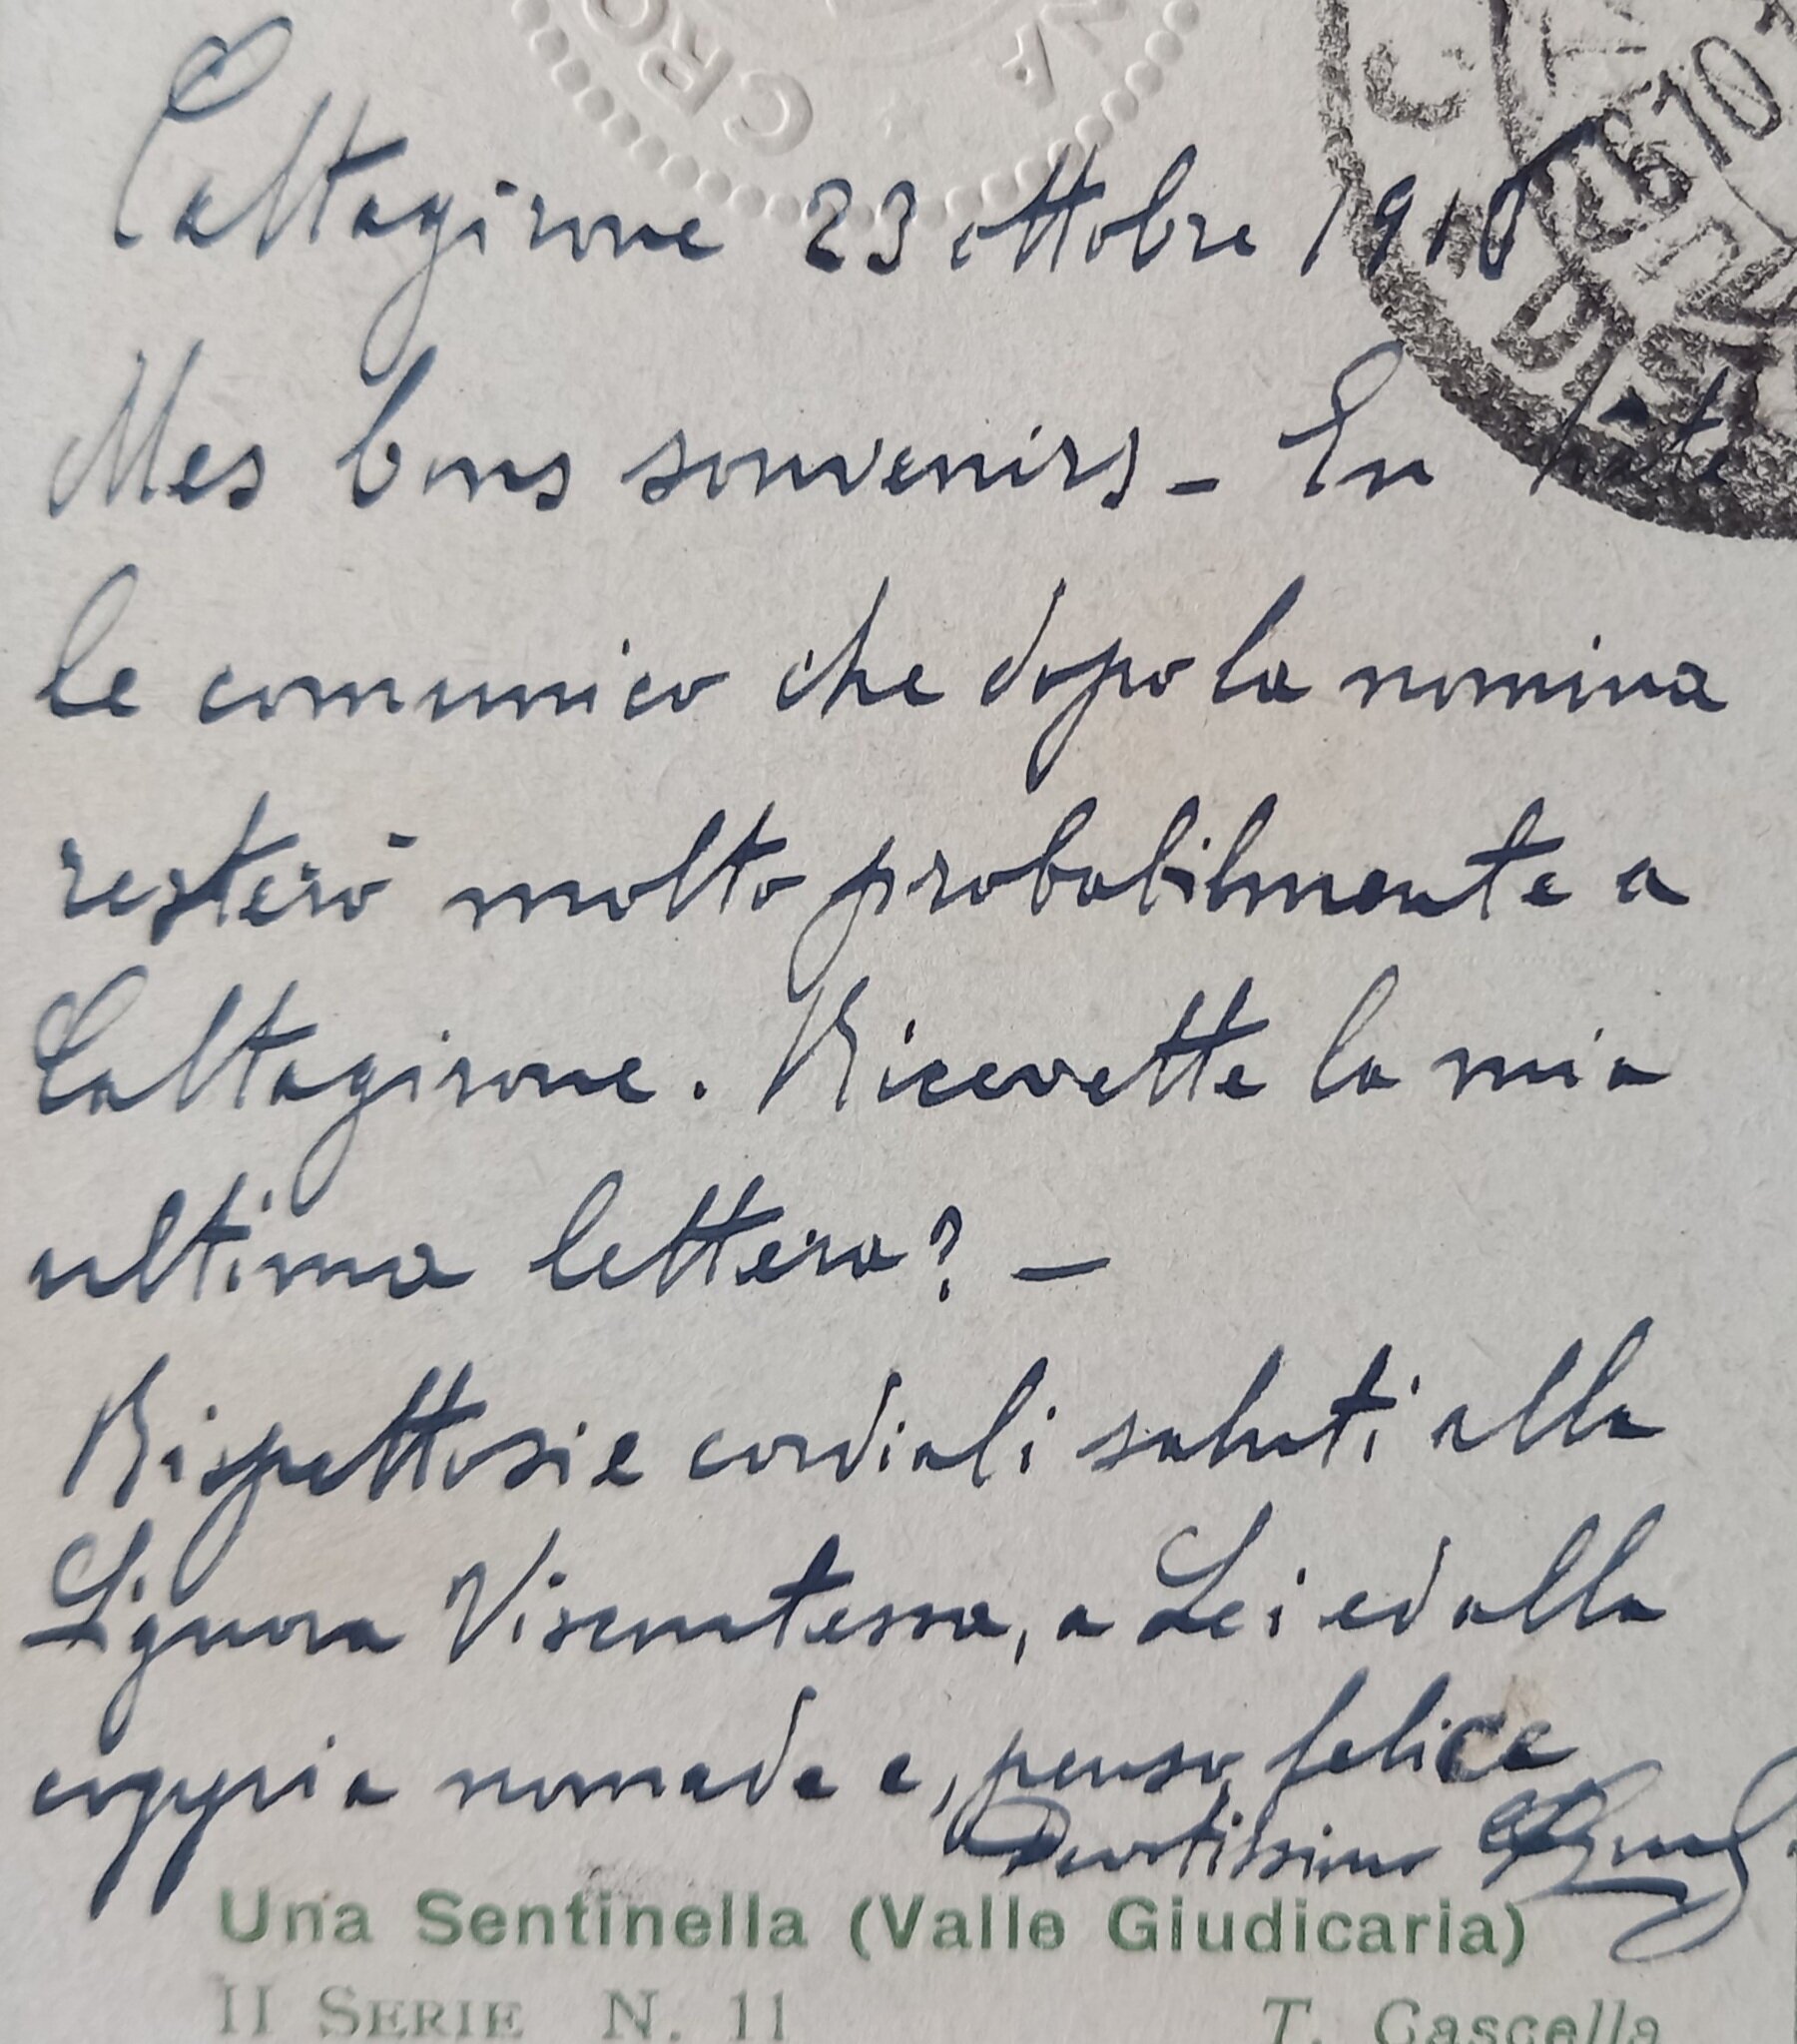 CRO
26.10.1
Caltagirone 23 ottobre 1918
Mes bons souvenirs – En hâte
le comunico che dopo la nomina
resterò molto probabilmente a
Caltagirone. Ricevette la mia
ultima lettera? –
Rispettosi e cordiali saluti alla
Signora Viscontessa, a Lei ed alla
coppia nomade e, penso, felice
Devotissimo
Una Sentinella (Valle Giudicaria)
II SERIE N. 11
T. Cascella